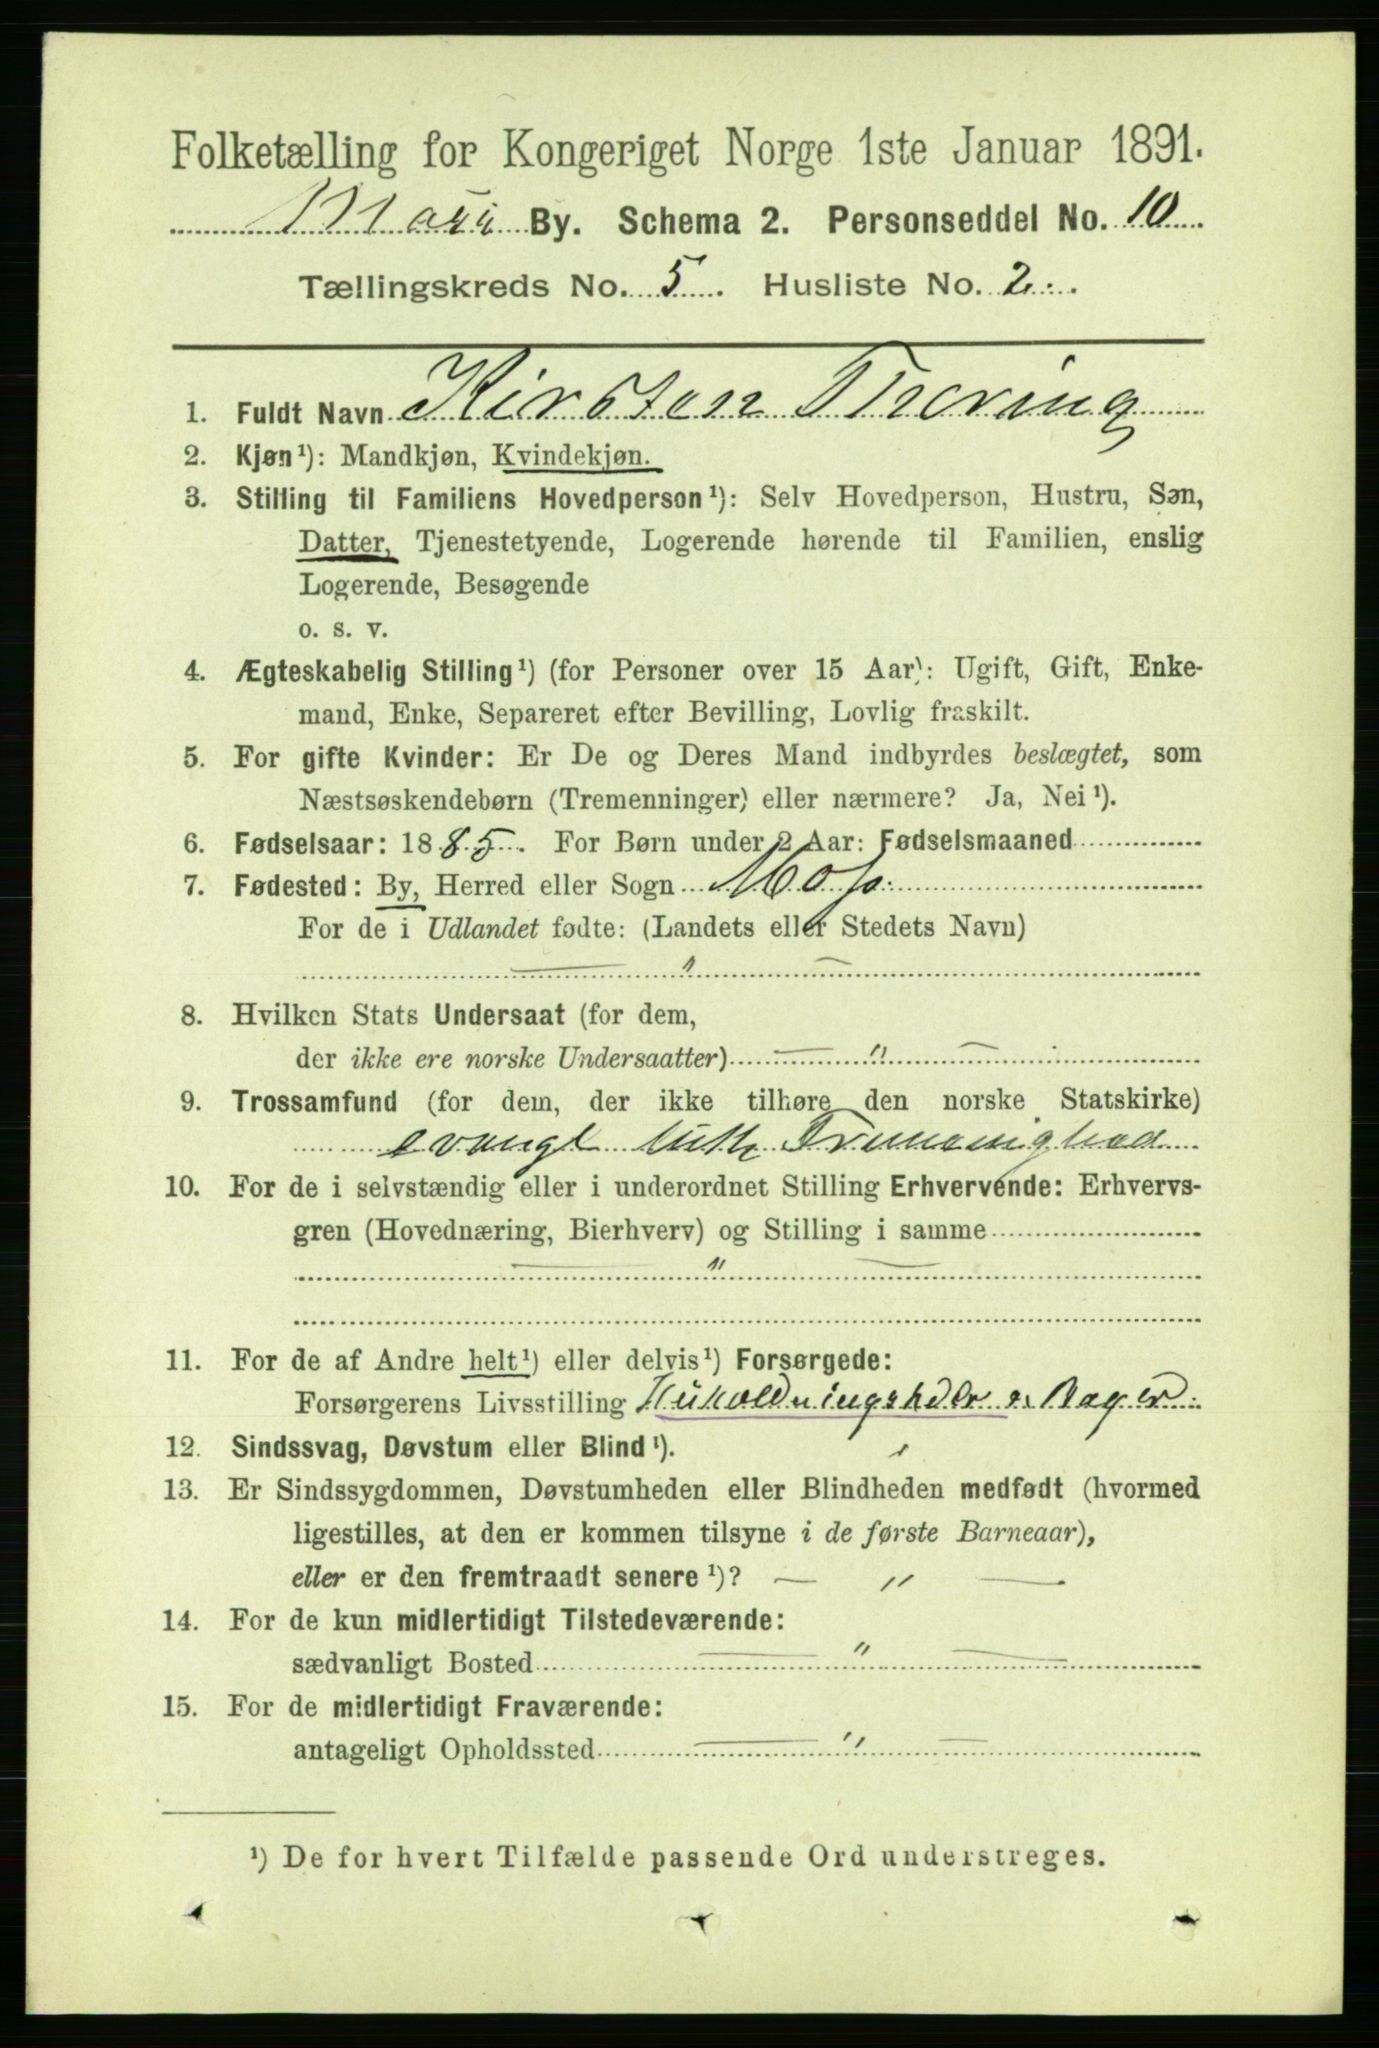 Folketælling for Kongeriget Norge 1ste Januar 1891.
By. Schema 2. Personseddel No. 10
Tællingskreds No. 5. Husliste No. 2.
1. Fuldt Navn Kirsten Thoring
2. Kjøn¹): Mandkjøn, Kvindekjøn.
3. Stilling til Familiens Hovedperson¹): Selv Hovedperson, Hustru, Søn,
Datter, Tjenestetyende, Logerende hørende til Familien, enslig
Logerende, Besøgende
o. s. v.
4. Ægteskabelig Stilling¹) (for Personer over 15 Aar): Ugift, Gift, Enke-
mand, Enke, Separeret efter Bevilling, Lovlig fraskilt.
5. For gifte Kvinder: Er De og Deres Mand indbyrdes beslægtet, som
Næstsøskendebørn (Tremenninger) eller nærmere? Ja, Nei¹).
6. Fødselsaar: 1885. For Børn under 2 Aar: Fødselsmaaned
7. Fødested: By, Herred eller Sogn Moss.
For de i Udlandet fødte: (Landets eller Stedets Navn)
— " —
8. Hvilken Stats Undersaat (for dem,
der ikke ere norske Undersaatter) — " —
9. Trossamfund (for dem, der ikke tilhøre den norske Statskirke)
evangl luth Frimenighed
10. For de i selvstændig eller i underordnet Stilling Erhvervende: Erhvervs-
gren (Hovednæring, Bierhverv) og Stilling i samme
— " —
11. For de af Andre helt¹) eller delvis¹) Forsørgede:
Forsørgerens Livsstilling Bager.
12. Sindssvag, Døvstum eller Blind¹).
13. Er Sindssygdommen, Døvstumheden eller Blindheden medfødt (hvormed
ligestilles, at den er kommen tilsyne i de første Barneaar),
eller er den fremtraadt senere¹)? — " —
14. For de kun midlertidigt Tilstedeværende:
sædvanligt Bosted — " —
15. For de midlertidigt Fraværende:
antageligt Opholdssted — " —
¹) De for hvert Tilfælde passende Ord understreges.